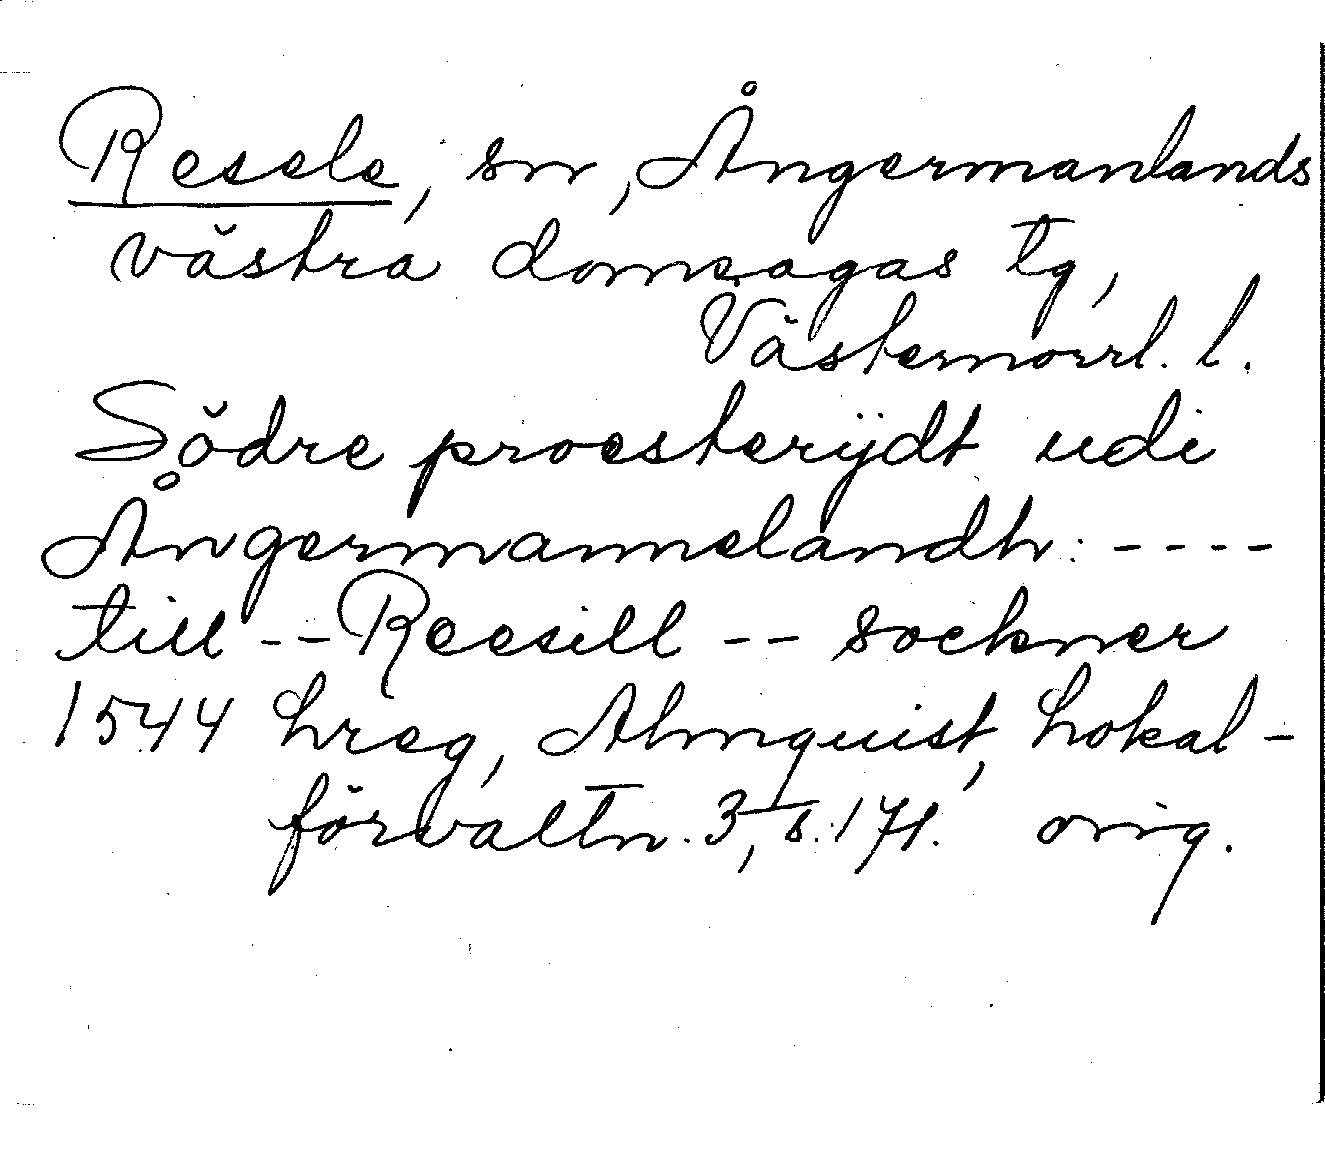 Resele, sn, Ångermanlands
västra domsagas tg,
Västernorrl. l.
Södre proesterijdt udi
Ångermannelandh: ----
till -- Reesill -- sockner
1544 hreg, Almquist, Lokal-
förvaltn. 3, s. 171. orig.